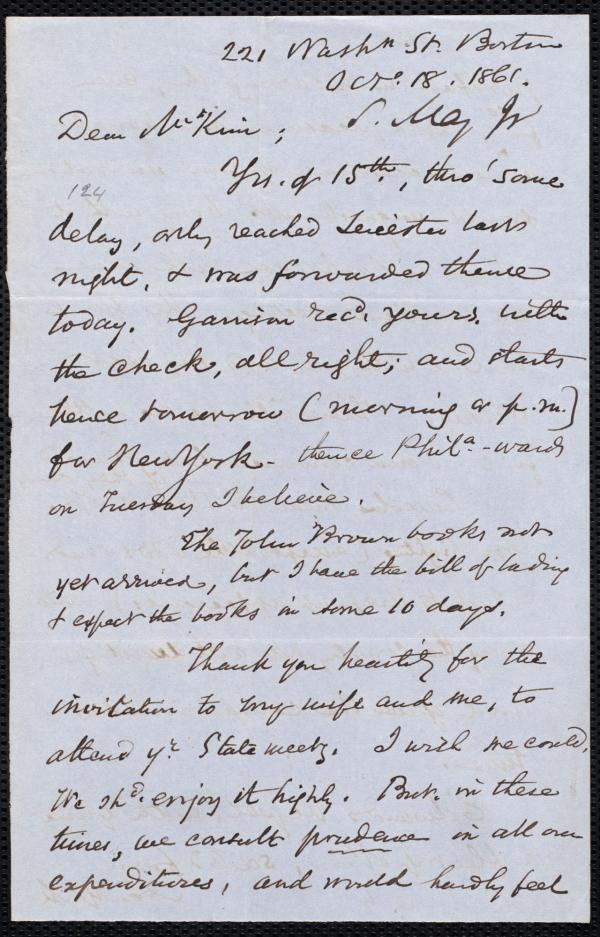 221 Washn. St. Boston
Octo. 18. 1861.
Dear McKim; S. May Jr
124
Yrs. of 15th., thro' some
delay, only reached Leicester last
night, & was forwarded thence
today. Garrison recd. yours, with
the check, all right; and starts
hence tomorrow (morning or p.m.)
for New York - thence Phila.-ward
on Tuesday I believe.
The John Brown books not
yet arrived, but I have the bill of lading
& expect the books in some 10 days.
Thank you heartily for the
invitation to my wife and me, to
attend yr. State meetg. I wish we could.
We shd. enjoy it highly. But in these
times, we consult prudence in all our
expenditures, and would hardly feel